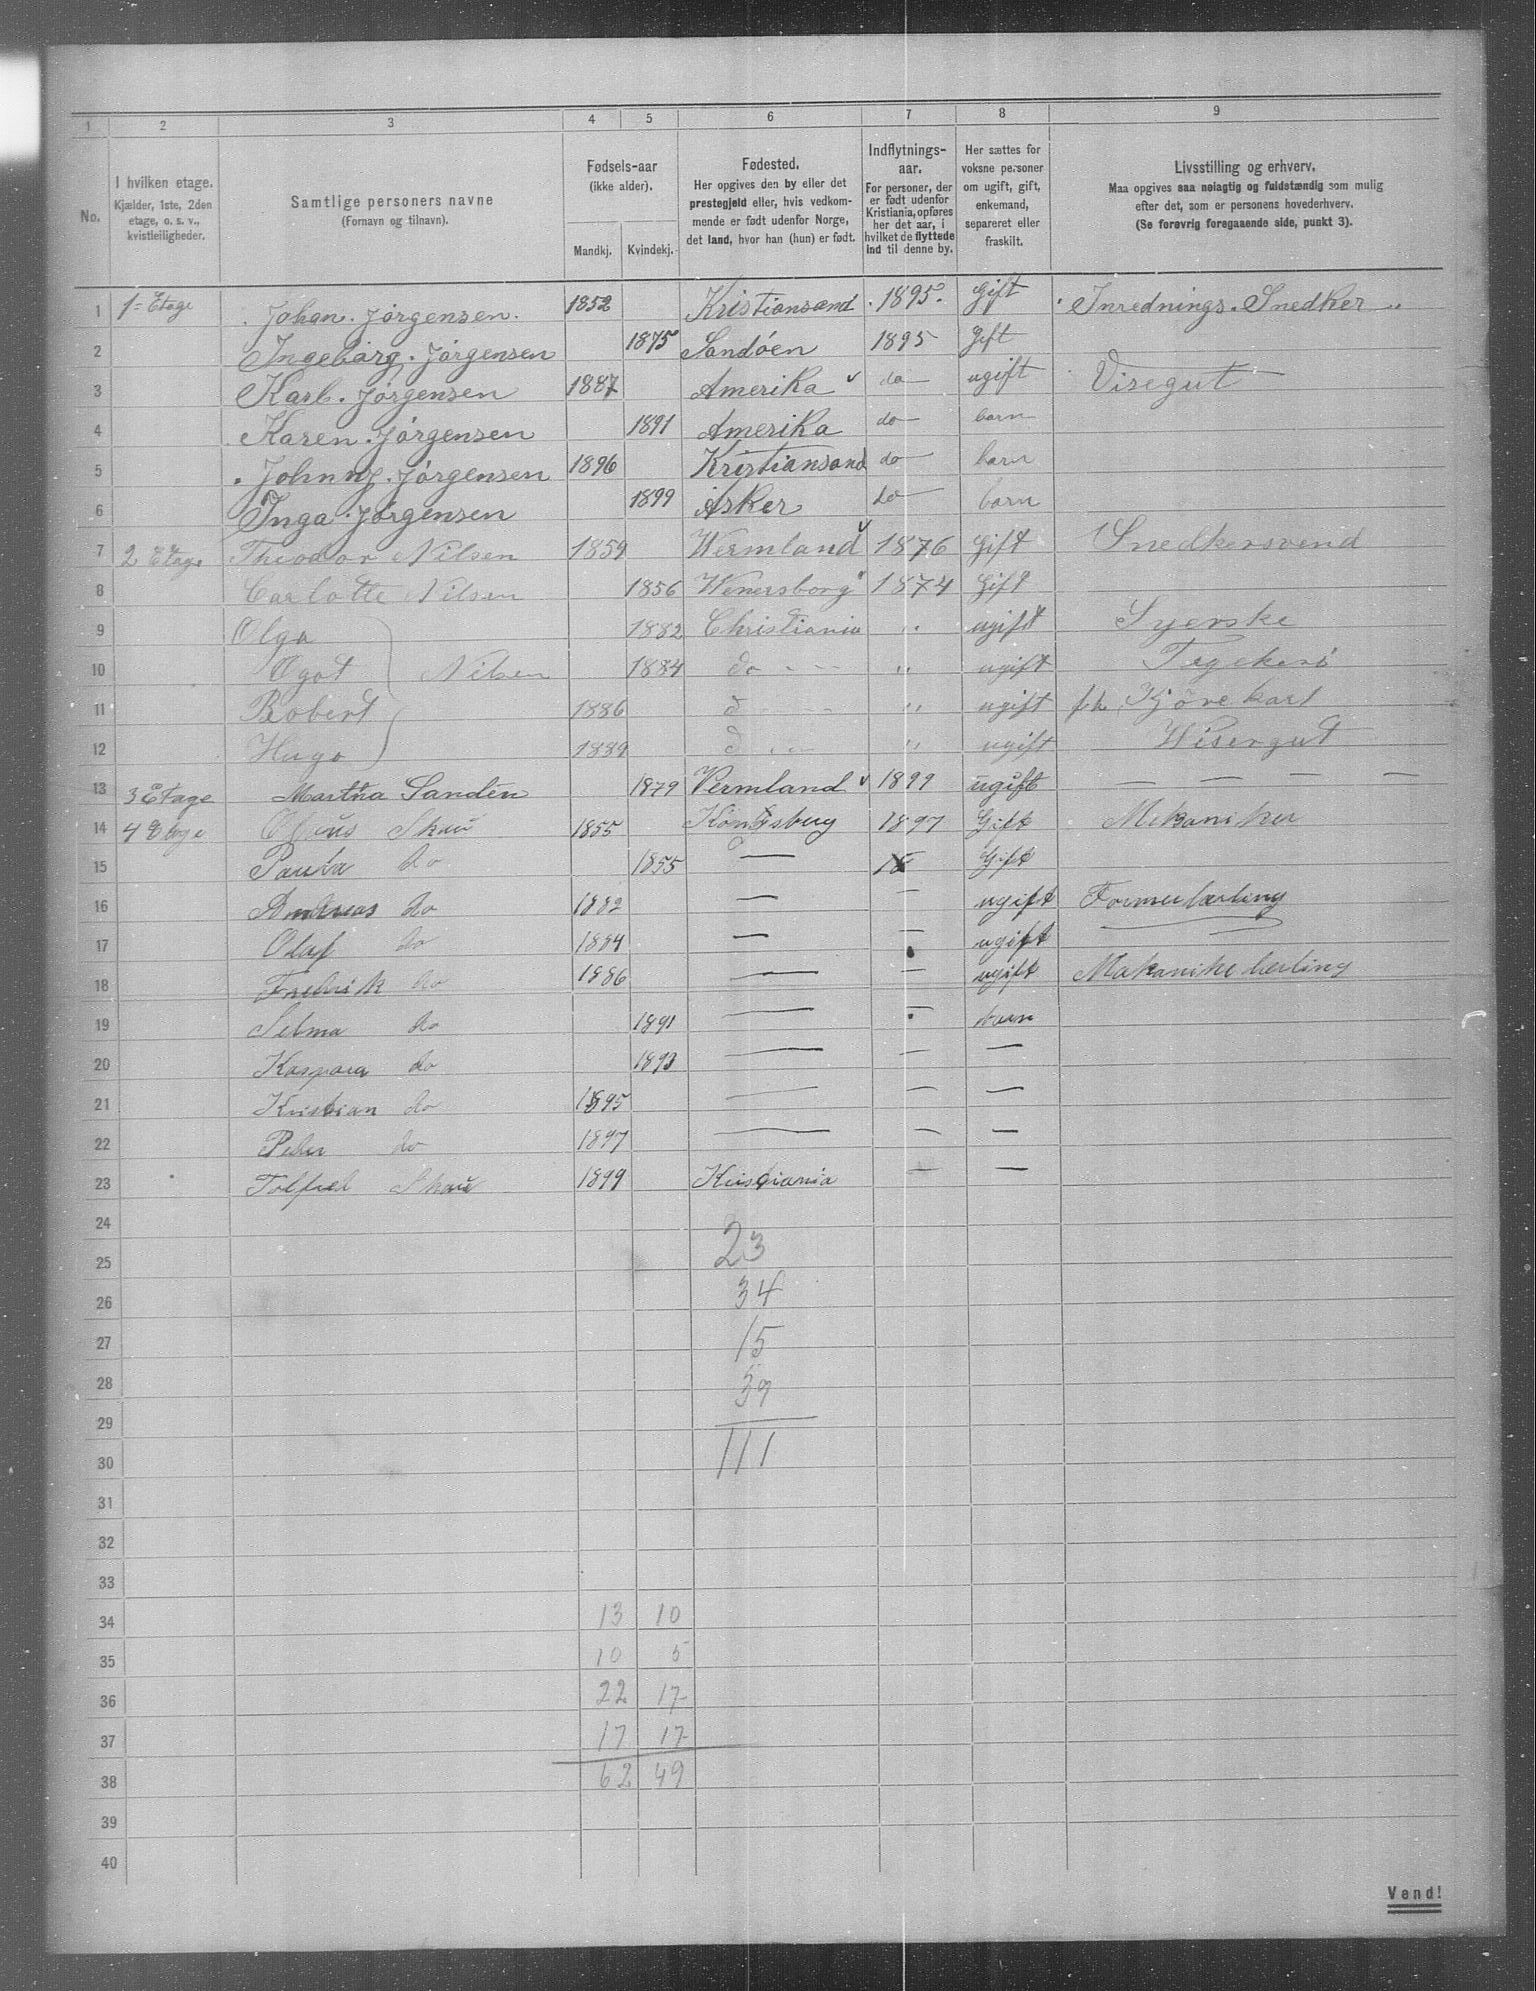 1 2 3 4 5 6 7 8 9
No.
I hvilken etage.
Kjælder, 1ste, 2den etage, o. s. v., kvistleiligheder.
Samtlige personers navne
(Fornavn og tilnavn).
Fødsels-aar
(ikke alder).
Mandkj. Kvindekj.
Fødested.
Her opgives den by eller det prestegjeld eller, hvis vedkommende er født udenfor Norge, det land, hvor han (hun) er født.
Indflytnings-aar.
For personer, der er født udenfor Kristiania, opføres her det aar, i hvilket de flyttede ind til denne by.
Her sættes for voksne personer om ugift, gift, enkemand, separeret eller fraskilt.
Livsstilling og erhverv.
Maa opgives saa nøiagtig og fuldstændig som mulig efter det, som er personens hovederhverv.
(Se forøvrig foregaaende side, punkt 3).
1 1 Etage Johan Jørgensen 1852 Kristiansand 1895 Gift Inrednings Snedker
2 Ingebarg Jørgensen 1875 Sandöen 1895 Gift
3 Karl Jørgensen 1887 Amerika do ugift Visegut
4 Karen Jørgensen 1891 Amerika do barn
5 Johnny Jørgensen 1896 Kristiansand do barn
6 Inga Jørgensen 1899 Asker do barn
7 2 Etage Theodor Nilsen 1859 Wermland 1876 Gift Snedkersvend
8 Carlotte Nilsen 1856 Wenersborg 1874 Gift
9 Olga 1882 Christiania " ugift Syerske
10 Agot Nilsen 1884 do " ugift
11 Robert 1886 d " ugift Kjørekarl
12 Hugo 1889 d " ugift Wisergut
13 3 Etage Martha Sandèn 1879 Vermland 1899 ugift — — — —
14 4 Etage Skau 1855 Kongsberg 1897 Gift Mekaniker
15 Paula do 1855 — Gift
16 Andreas do 1882 — — ugift Formerlærling
17 Olaf do 1884 — — ugift
18 Fredrik do 1886 — — ugift Makanike lærling
19 Selma do 1891 — — barn
20 Kaspara do 1893 — — —
21 Kristian do 1895 — — —
22 Peder do 1897 — — —
23 Skau 1899 Kristiania — —
24 23
25
26 34
27 15
28 39
29
30 111
31
32
33
34 13 10
35 10 5
36 22 17
37 17 17
38 62 49
39
40
Vend!